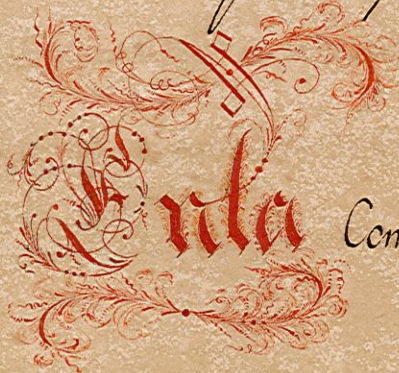 Enla Com